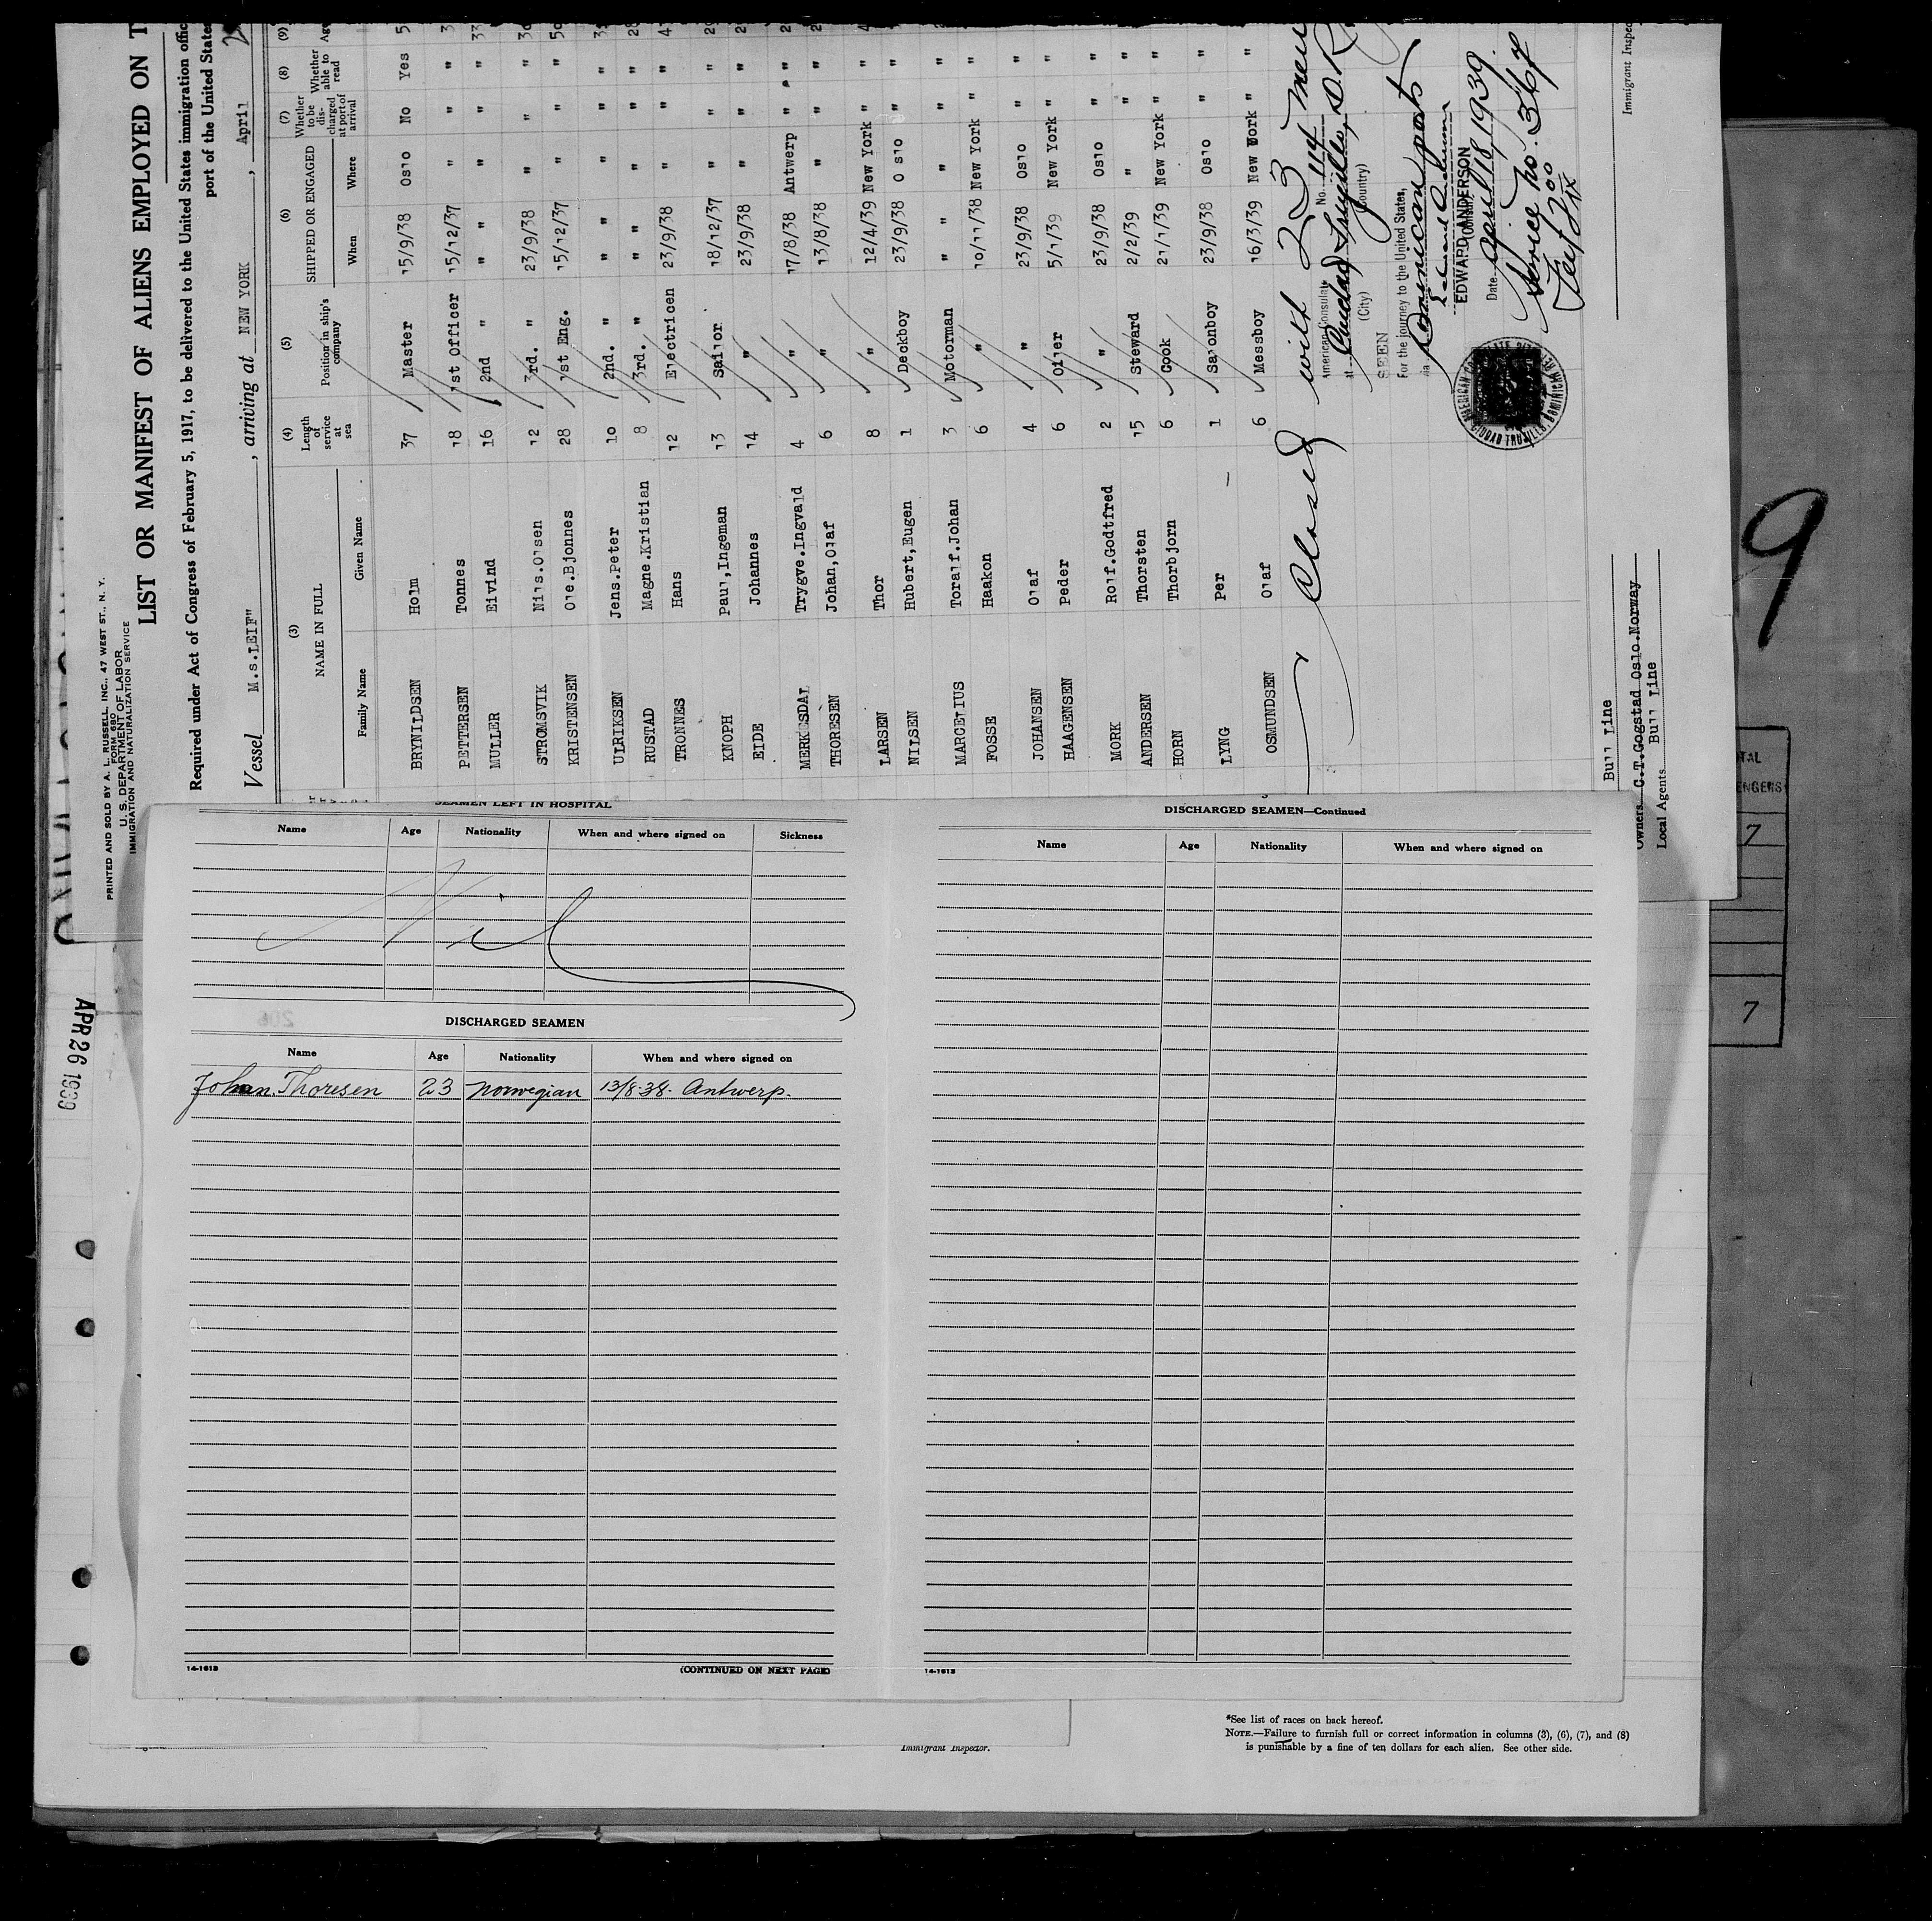 PRINTED AND SOLD BY A. L. RUSSELL, INC., 47 WEST ST., N. Y.
FORM 680
U. S. DEPARTMENT OF LABOR
IMMIGRATION AND NATURALIZATION SERVICE
LIST OR MANIFEST OF ALIENS EMPLOYED ON T
Required under Act of Congress of February 5, 1917, to be delivered to the United States immigration offic
port of the United States
Vessel M.s.LEIF" , arriving at NEW YORK , April 2
(3) (4) (5) (6) (7) (8) (9)
NAME IN FULL Length of service at sea Position in ship's company SHIPPED OR ENGAGED Whether to be discharged at port of arrival Whether able to read Ag
Family Name Given Name When Where
BRYNILDSEN Holm 37 Master 15/9/38 Oslo No Yes 5
PETTERSEN Tonnes 18 1st Officer 15/12/37 " " " 3
MULLER Eivind 16 2nd " " " " " " 33
STROMSVIK Nils.Olsen 12 3rd. " 23/9/38 " " "
KRISTENSEN Ole.Bjonnes 28 1st Eng. 15/12/37 " " " 50
ULRIKSEN Jens.Peter 10 2nd. " " " " " " 3
RUSTAD Magne.Kristian 8 3rd. " " " " " " 28
TRONINES Hans 12 Electricen 23/9/38 " " " 4
KNOPH Paul,Ingeman 13 Sailor 18/12/37 " " " 2
EIDE Johannes 14 " 23/9/38 " " " 2
MERKESDAL Trygve.Ingvald 4 " 17/8/38 Antwerp " " 2
THORESEN Johan,Olaf 6 " 13/8/38 " " " 2
LARSEN Thor 8 " 12/4/39 New York " " 4
NILSEN Hubert,Eugen 1 Deckboy 23/9/38 O slo " "
MARCELIUS Toralf.Johan 3 Motorman " " " " "
FOSSE Haakon 6 " 10/11/38 New York " "
JOHANSEN Olaf 4 " 23/9/38 Oslo " "
HAAGENSEN Peder 6 Oiler 5/1/39 New York " "
MORK Rolf.Godtfred 2 " 23/9/38 Oslo " "
ANDERSEN Thorsten 15 Steward 2/2/39 " " "
HORN Thorbjorn 6 Cook 21/1/39 New York " "
LYNG Per 1 Salonboy 23/9/38 Oslo " "
OSMUNDSEN Olaf 6 Messboy 16/3/39 New York " "
Closed with 23 men
American Consulate No. 114
at Ciudad Trujillo, D.R.
(City) (Country)
SEEN
For the journey to the United States,
via Dominican ports
EDWARD ANDERSON
(Consul)
Date April 18, 1939.
Service No. 367
Bull Line
Owners C.T.Gogstad Oslo.Norway
Local Agents Bull Line
Immigrant Inspec
9
TAL
ENGERS
7
7
APR 26 1939
SEAMEN LEFT IN HOSPITAL
Name Age Nationality When and where signed on Sickness
Nil
DISCHARGED SEAMEN
Name Age Nationality When and where signed on
Johan. Thoresen 23 norwegian 13/8-38. Antwerp.
14-1613 (CONTINUED ON NEXT PAGE)
DISCHARGED SEAMEN—Continued
Name Age Nationality When and where signed on
14-1613
Immigrant Inspector.
*See list of races on back hereof.
NOTE.—Failure to furnish full or correct information in columns (3), (6), (7), and (8)
is punishable by a fine of ten dollars for each alien. See other side.